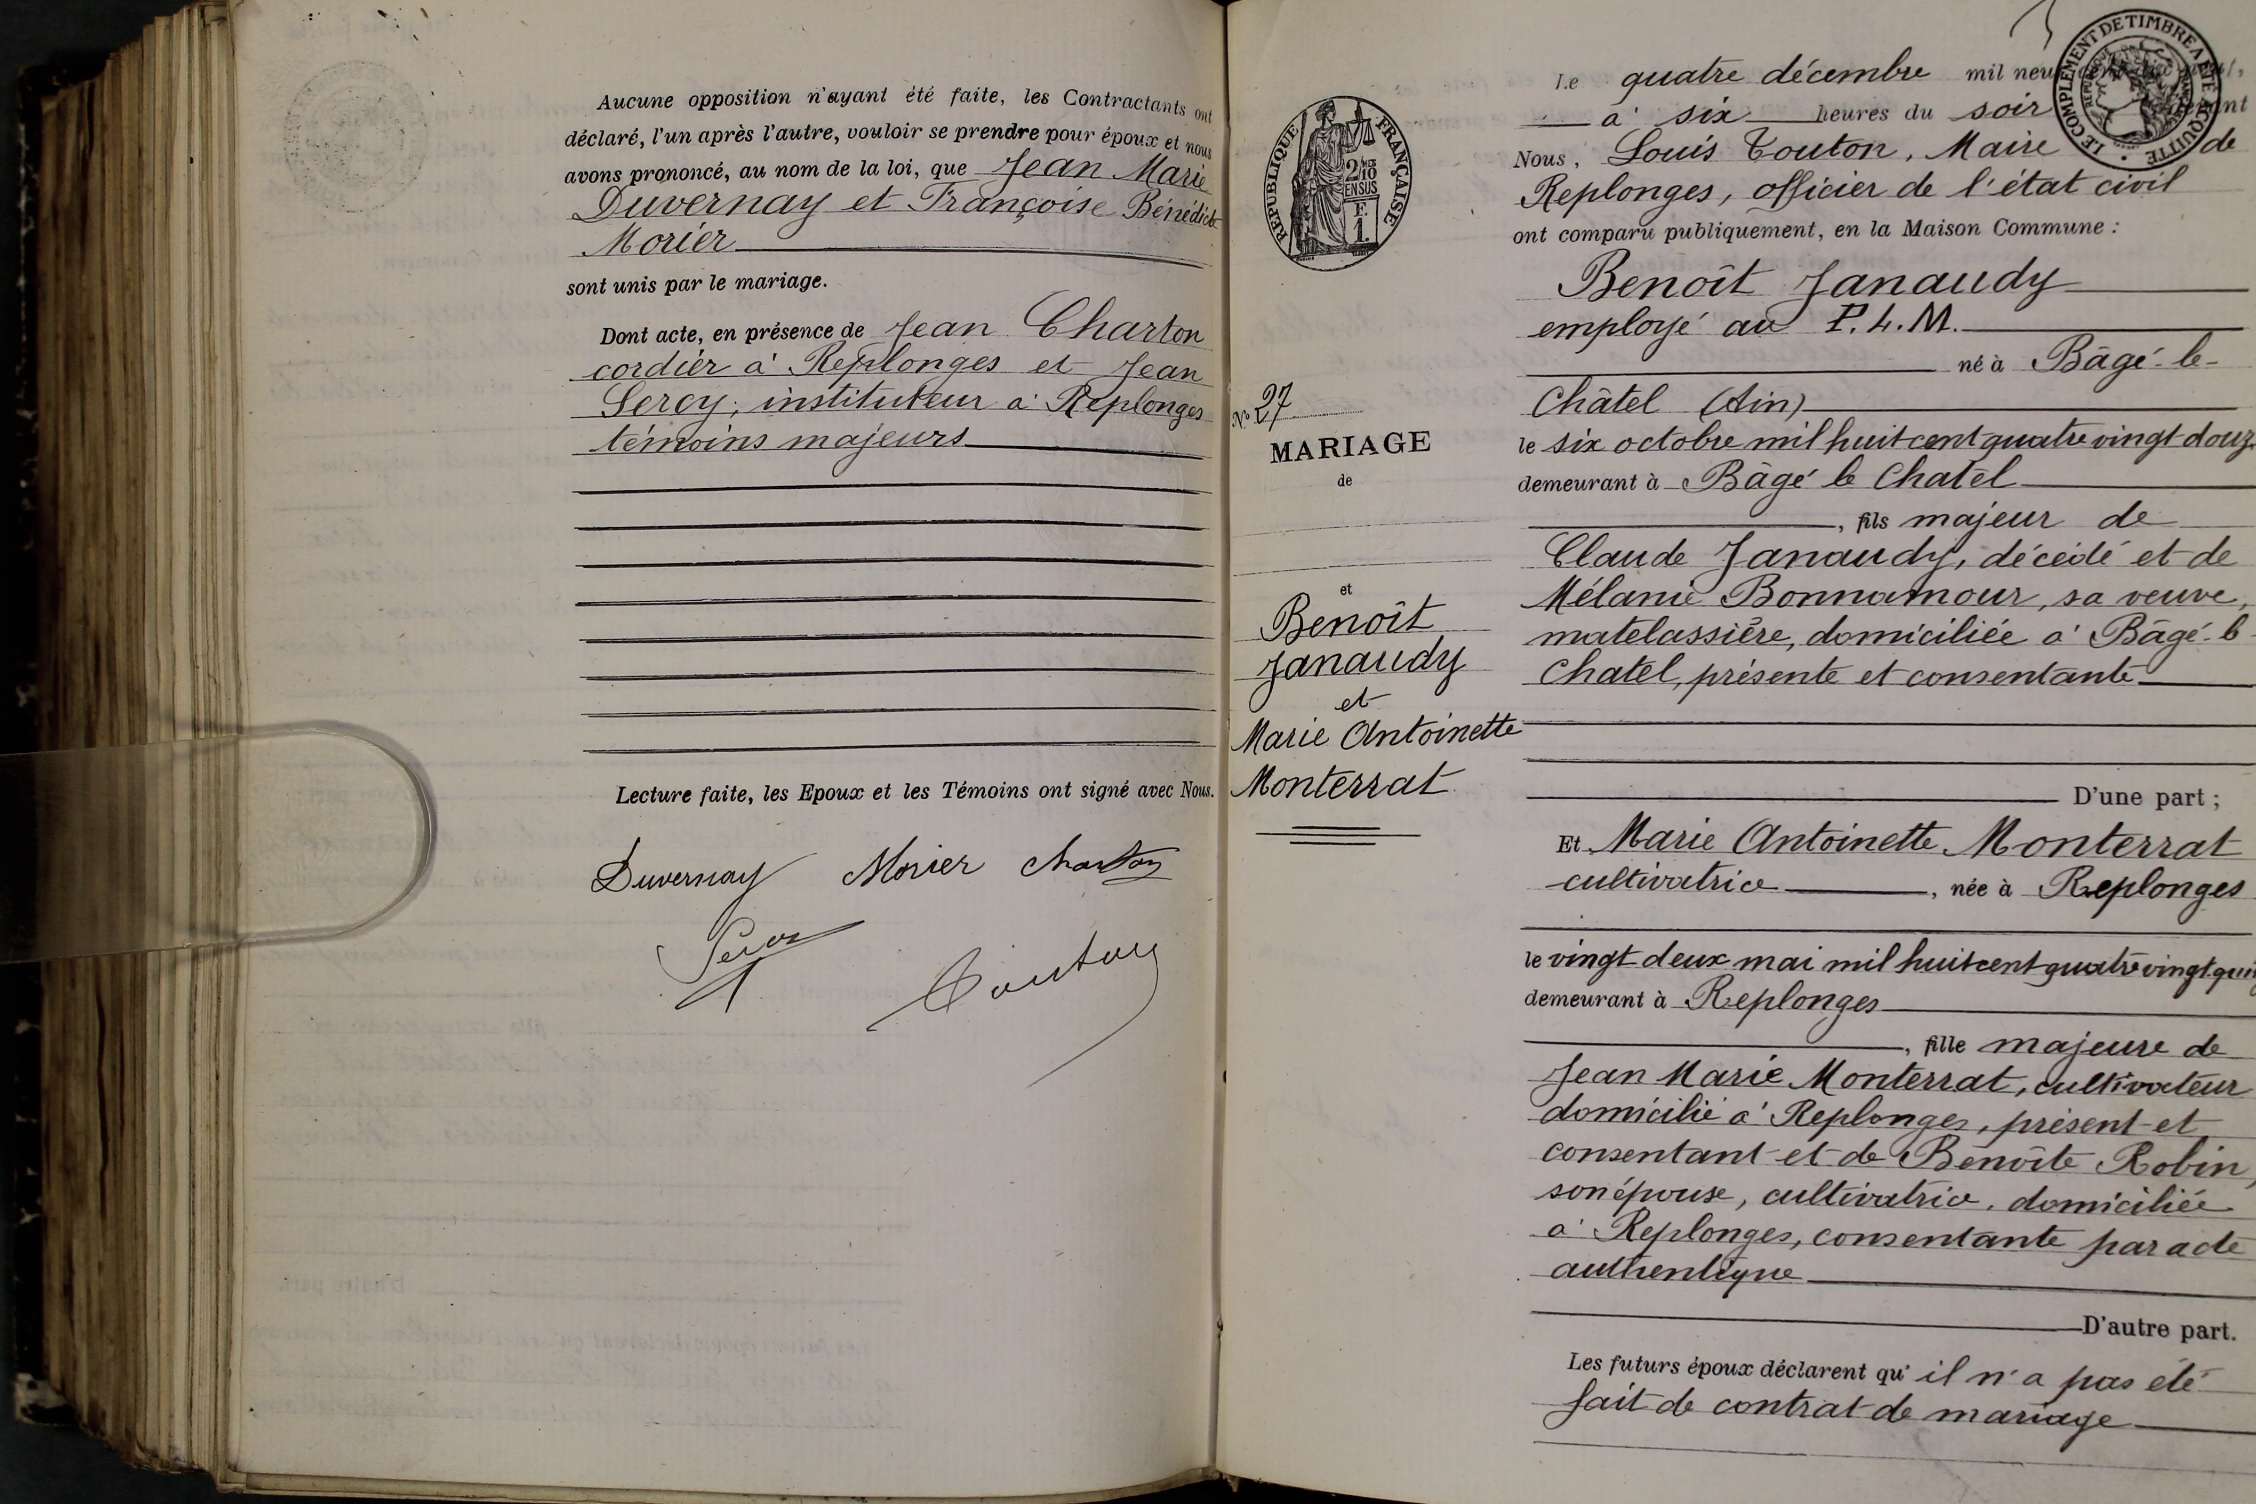 Aucune opposition n'ayant été faite, les Contractants ont
déclaré, l'un après l'autre, vouloir se prendre pour époux et nous
avons prononcé, au nom de la loi, que Jean Marie
Duvernay et Françoise Bénédicte
Morier
sont unis par le mariage.
Dont acte, en présence de Jean Charton
cordier à Replonges et Jean
Sercy, instituteur à Replonges
témoins majeurs
Lecture faite, les Epoux et les Témoins ont signé avec Nous.
Duvernay Morier Charton
Touton
REPUBLIQUE FRANÇAISE
2/10
EN SUS
F.
1.
N° 27
MARIAGE
de
et
Benoît
Janaudy
et
Marie Antoinette
Monterrat
LE COMPLEMENT DE TIMBRE A ETE ACQUITTE
Le quatre décembre mil neuf
à six heures du soir
Nous, Louis Touton, Maire de
Replonges, officier de l'état civil
ont comparu publiquement, en la Maison Commune :
Benoît Janaudy
employé au P.L.M.
né à Bâgé-le-
Châtel (Ain)
le six octobre mil huit cent quatre vingt douz
demeurant à Bâgé le Chatel
, fils majeur de
Claude Janaudy, décédé et de
Mélanie Bonnamour, sa veuve,
matelassière, domiciliée à Bâgé-le-
Chatel, présente et consentante
D'une part ;
Et Marie Antoinette Monterrat
cultivatrice , née à Replonges
le vingt deux mai mil huit cent quatre vingt quin
demeurant à Replonges
, fille majeure de
Jean Marie Monterrat, cultivateur
domicilié à Replonges, présent et
consentant et de Benoîte Robin,
son épouse, cultivatrice, domiciliée
à Replonges, consentante par acte
authentique
D'autre part.
Les futurs époux déclarent qu'il n'a pas été
fait de contrat de mariage